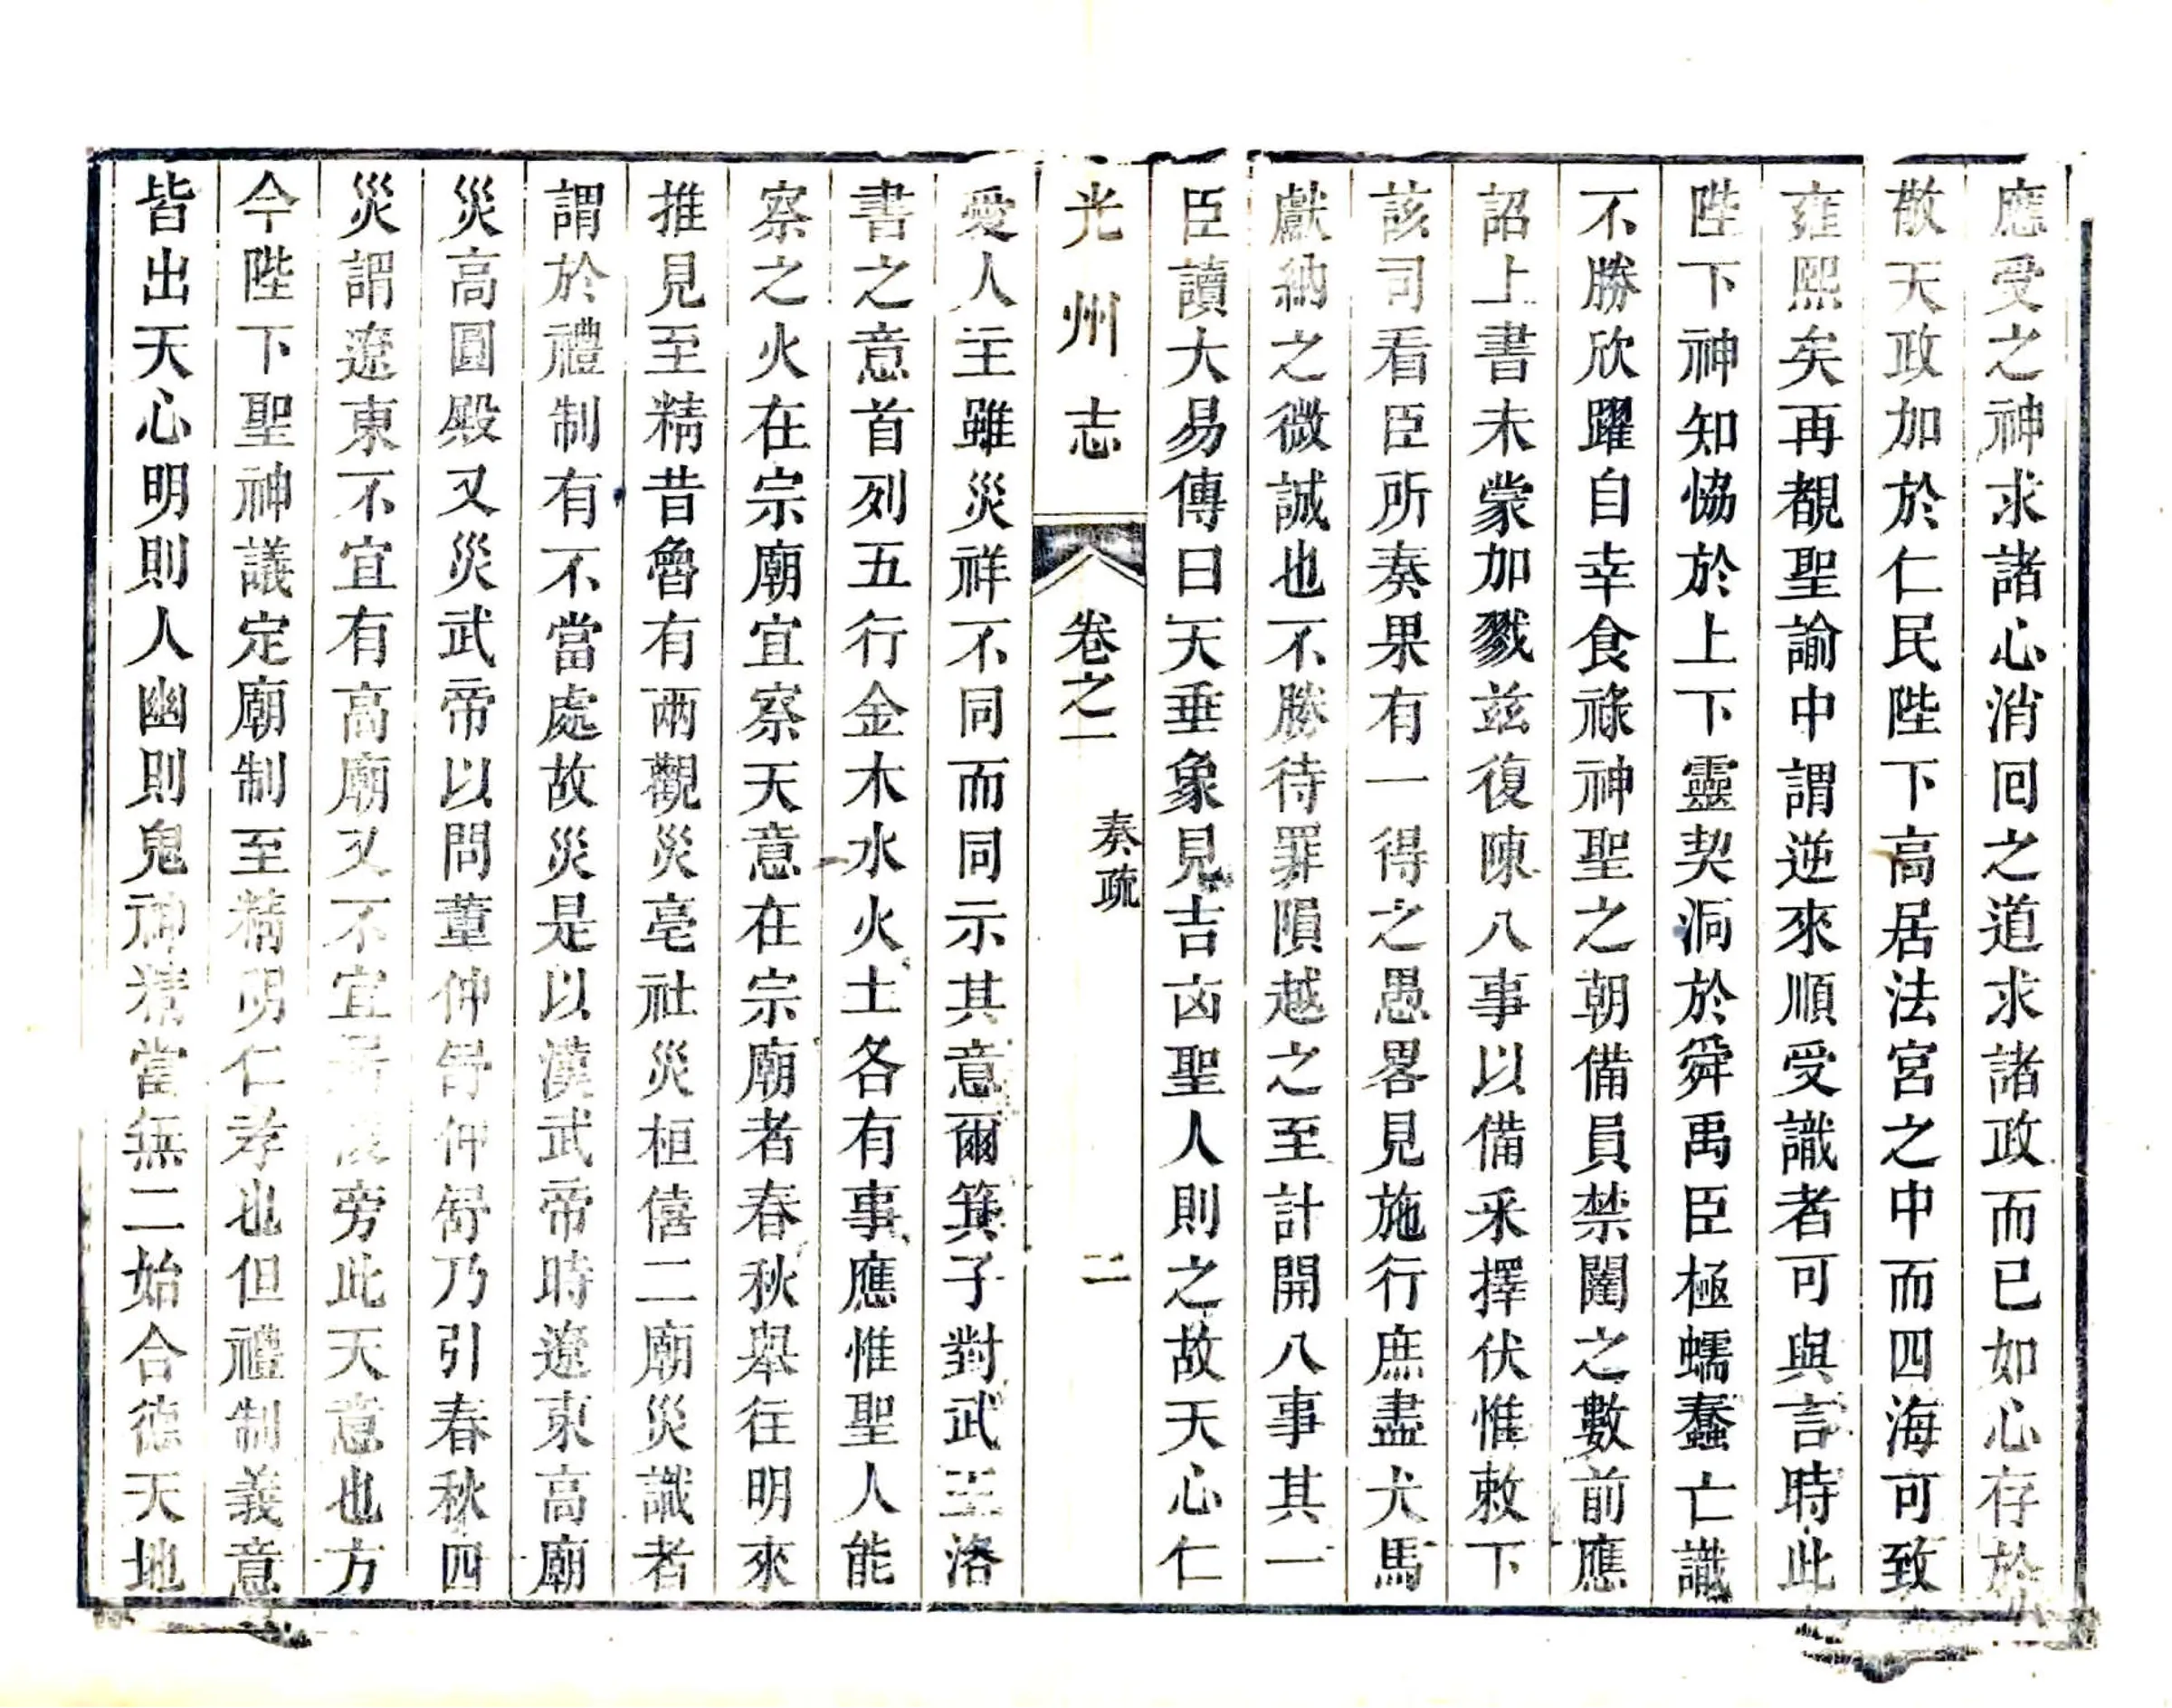 應受之神求諸心消回之道求諸政而已如心存於
敬天政加於仁民陛下高居法宮之中而四海可致
雍熙矣再覩聖諭中謂逆來順受識者可與言時此
陛下神知恊於上下靈契洞於舜禹臣極蠕蠢亡識
不勝欣躍自幸食祿神聖之朝備員禁闥之數前應
詔上書未蒙加戮茲復陳八事以備釆擇伏惟敕下
該司看臣所奏果有一得之愚畧見施行庶盡犬馬
獻納之微誠也不勝待罪隕越之至計開八事其一
臣讀大易傳曰天垂象見吉㐫聖人則之故天心仁
光州志 卷之一 奏疏 二
愛人主雖災祥不同而同示其意爾箕子對武王洛
書之意首列五行金木水火土各有事應惟聖人能
察之火在宗廟宜察天意在宗廟者春秋舉往明來
推見至精昔魯有兩觀災亳社災桓僖二廟災識者
謂於禮制有不當處故災是以漢武帝時遼東高廟
災高圓殿又災武帝以問董仲舒仲舒乃引春秋四
災謂遼東不宜有高廟又不宜居陵旁此天意也方
今陛下聖神議定廟制至精明仁孝也但禮制義意
皆出天心明則人幽則鬼神精當無二始合德天地